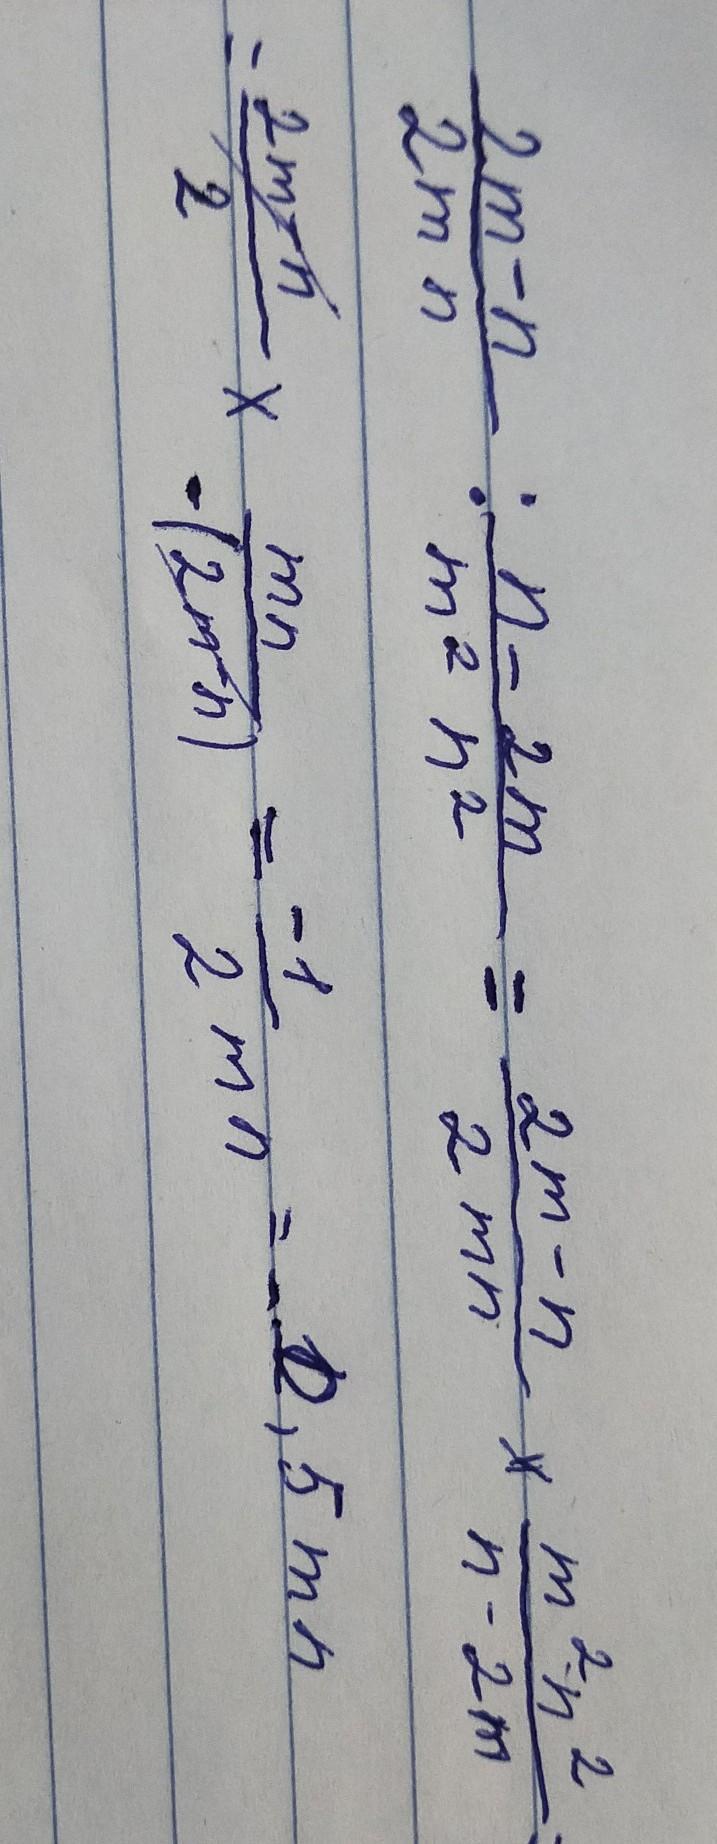 (2m-n)/(2mn) : (n-2m)/(m²n²) = (2m-n)/(2mn) × (m²·n²)/(n-2m) =
= (2m-n)/2 × mn/(-(2m-n)) = -1/2 mn = -0,5mn